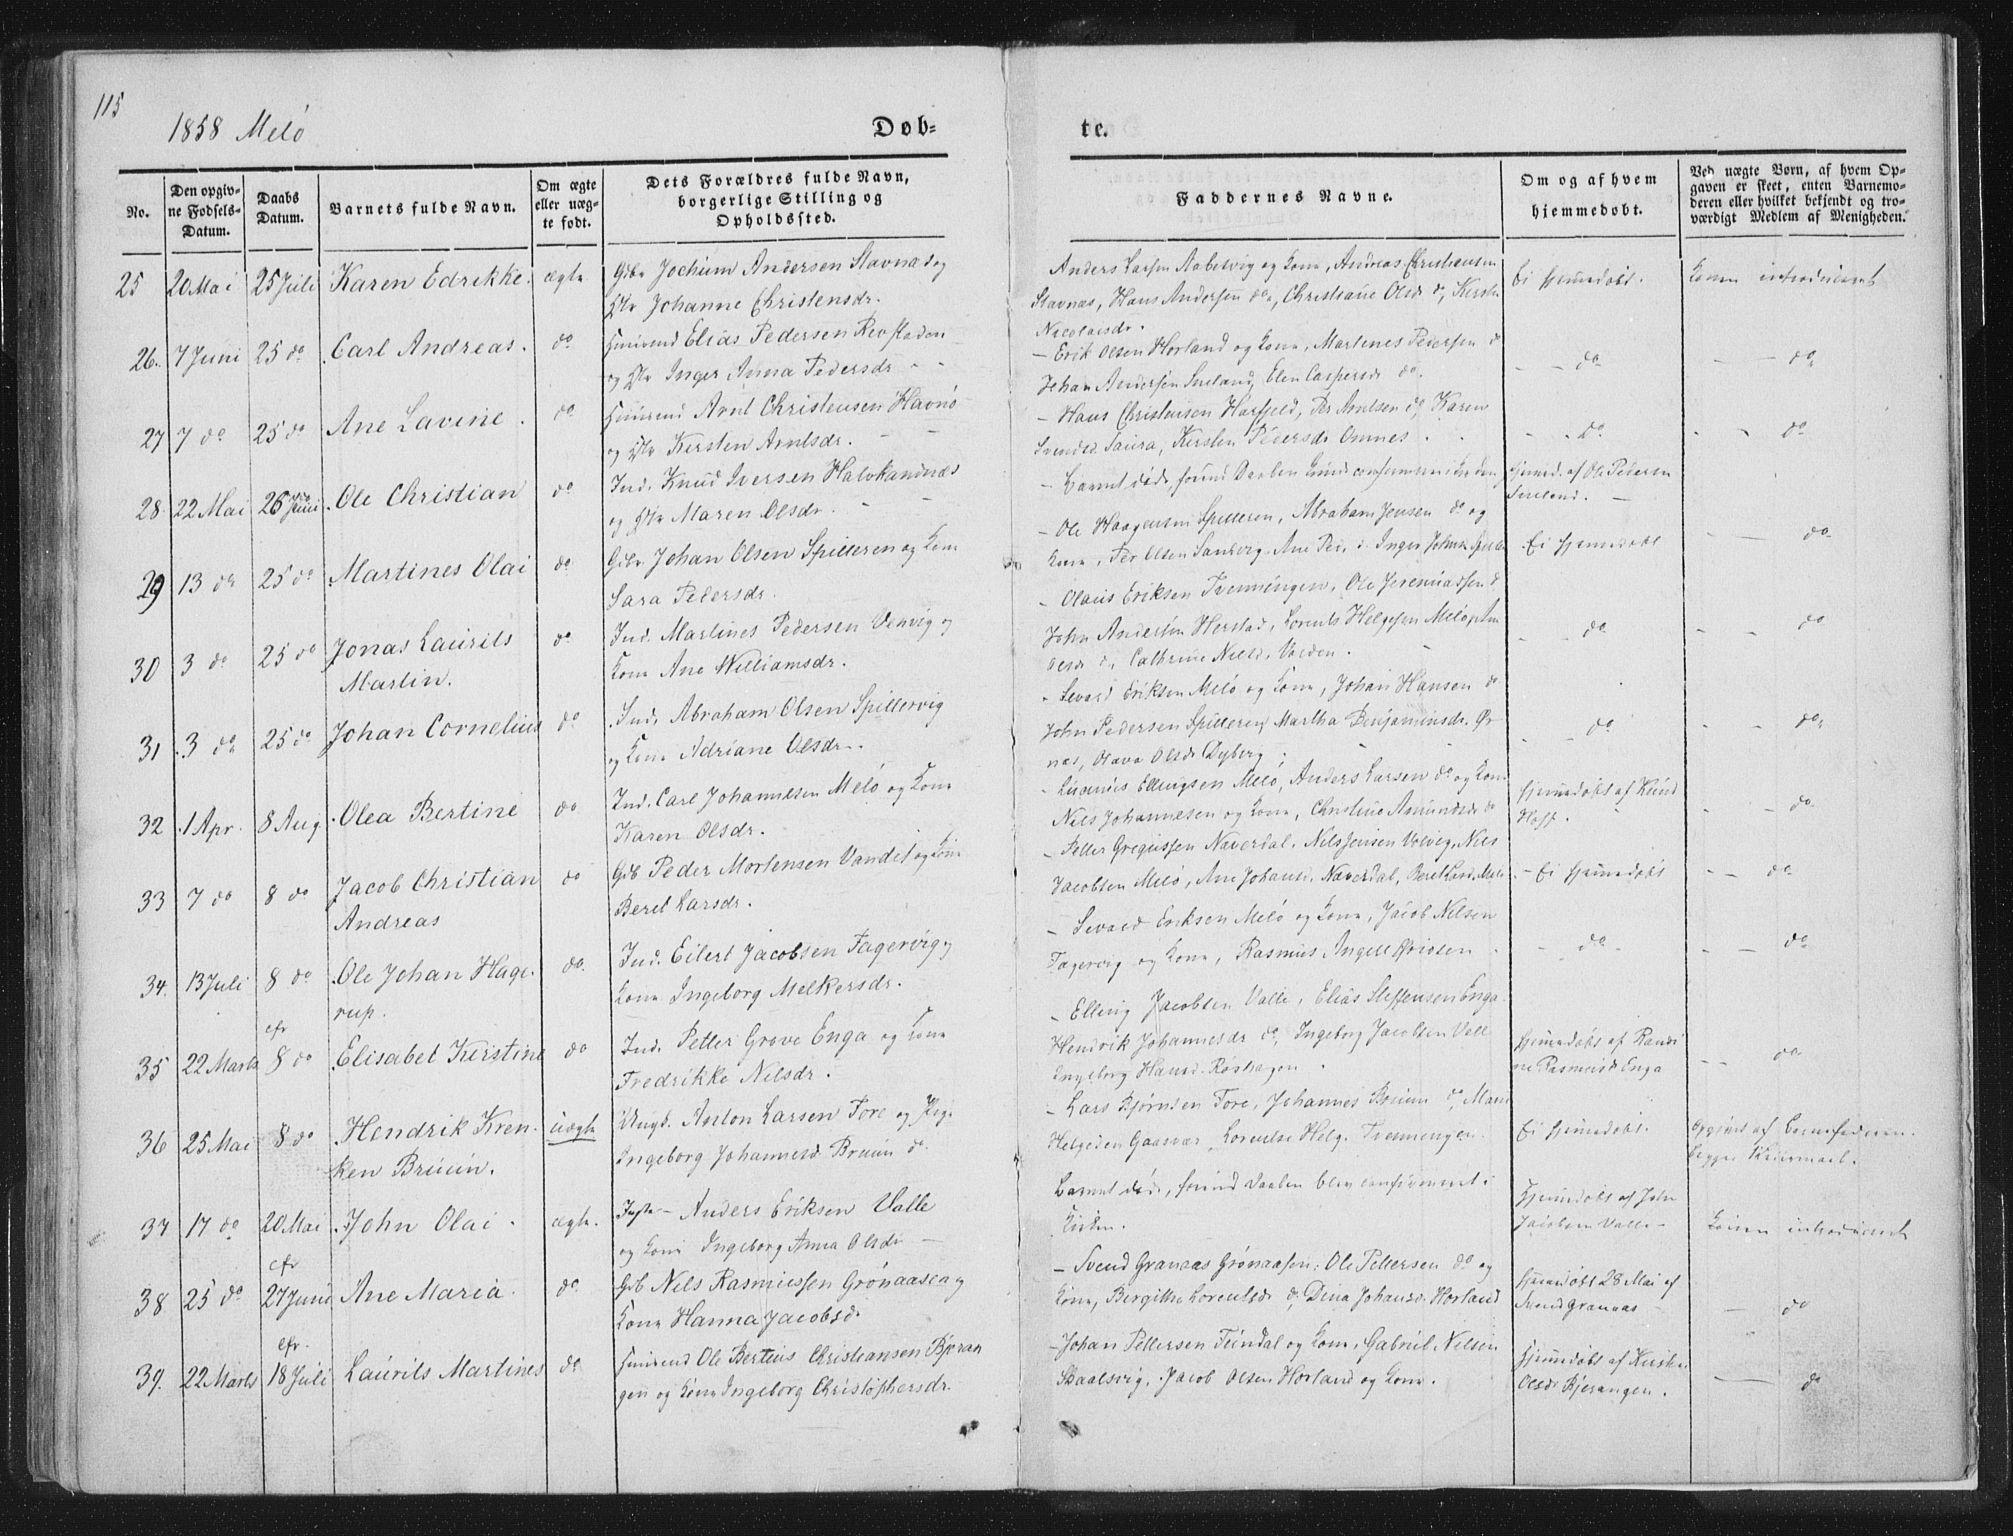 115
1858 Melö
Døb-
te.
No.
Den opgiv-
ne Fødsels-
Datum.
Daabs
Datum.
Barnets fulde Navn.
Om ægte
eller uæg-
te født.
Dets Forældres fulde Navn,
borgerlige Stilling og
Opholdssted.
Faddernes Navne.
Om og af hvem
hjemmedøbt.
Ved uægte Børn, af hvem Op-
gaven er skeet, enten Barnemo-
deren eller hvilket bekjendt og tro-
værdigt Medlem af Menigheden.
25 20 Mai 25 Juli Karen Edrikke. ægte Gdbr Jochum Andersen Stavnæs og
Johanne Christensdr.
Anders Larsen Nobelvig og Kone, Andreas Christensen
Stavnæs, Hans Andersen do, Christiane Olsd. do, Kirsten
Nicolaisdr.
Ei hjemmedøbt. Konen introduceret
26. 7 Juni 25 do Carl Andreas. do Elias Pedersen Revstaden
og Inger Anna Pedersdr
– Erik Olsen Horland og Kone, Martenes Pedersen do
Johan Andersen Sneland, Elen Caspersdr do.
– – do – – do
27 7 do 25 do Ane Lavine. do Arnt Christensen Havnö
og Kirsten Arntsdr.
– Hans Christensen Harfjeld, Per Arntsen do, Karen
Svendsd. Saura, Kirsten Pedersdr Omnes.
– – do – – do
28 22 Mai 26 Juni Ole Christian do Ind. Knud Iversen Halvkandnæs
og Maren Olsdr.
– Barnet døde, forend Daaben
hjemmed. af Ole Petersen
Sneland. –
29 13 do 25 do Martines Olai do Gdbr. Johan Olsen Spilleren og Kone
Sara Pedersdr.
– Ole Haagensen Spilleren, Abraham Jensen do og
Kone, Per Olsen Sandvig, Ane Inger
Ei hjemmedøbt – – do
30 3 do 25 do Jonas Laurits
Martin.
do Ind. Martines Pedersen Venvig og
Kone Ane Williamsdr.
– Olaus Eriksen Tvenningen, Ole Jeremiassen do
John Andersen Herstad, Lorents Helgesen Melö,
Olsdr do, Cathrine Nielsd. Valden.
– – do – – do
31 3 do 25 do Johan Cornelius do Ind. Abraham Olsen Spillervig
og Kone Adriane Olsdr.
– Sevald Eriksen Melö og Kone, Johan Hansen do
John Pedersen Spilleren, Martha Benjaminsdr. Ør-
næs, Olava Olsdr Dyberg.
– – do – – do
32 1 Apr. 8 Aug. Olea Bertine do Ind. Carl Johannesen Melö og Kone
Karen Olsdr.
– Ellingsen Melö, Anders Larsen do og Kone
Nils Johannesen og Kone, Christine Amundsdr do
hjemmedøbt af Knud
Hoff. – – do
33 7 do 8 do Jacob Christian
Andreas
do Gdb Peder Mortensen Vandel og Kone
Beret Larsdr.
– Petter Gregussen Naverdal, Nils Jensen Valvig, Nils
Jacobsen Melö, Ane Johansd. Naverdal, Beret Larsd. Melö
– Ei hjemmedøbt – – do
34. 13 Juli 8 do Ole Johan Hage-
rup.
do. Ind. Eilert Jacobsen Fagervig og
Kone Ingeborg Melkersdr.
– Sevald Eriksen Melö og Kone, Jacob Nilsen
Fagervig og Kone, Rasmus
– do – – – do
35 22 Marts efr 8 do Elisabet Kirstine do Ind. Petter Grove Enga og Kone
Fredrikke Nilsdr.
– Elling Jacobsen Valle, Elias Steffensen Enga
Hendrik Johannesdr do, Ingeborg Jacobsen Valle
Ingeborg Hansd. Røshagen.
hjemmedøbt af Randi-
ne Rasmusd Enga
– – do
36 25 Mai 8 do Hendrik Kren-
ken Bruun.
uægte Ungk. Anton Larsen Fore og Pige
Ingeborg Johannesd Bruun do
– Lars Bjørnsen Fore, Johannes Bruun do, Maren
Helgesen Gaasvær, Lorentse Helg. Tvenningen.
Ei hjemmedøbt. Opgivet af Barnefaderen.
begges Leiermaal.
37 17 do 20 Mai John Olai. ægte. Anders Eriksen Valle
og Kone Ingeborg Anna Olsdr –
Barnet død, forend Daaben blev confirmeret i
Kirken.
hjemmedøbt af John
Jacobsen Valle – Konen introduceret
38 25 do efr 27 Juni Ane Maria. do Gdb Nils Rasmussen Grönaasen og
Kone Hanna Jacobsd.
– Svend Granaas Grönaasen, Ole Pettersen do og
Kone, Bergitthe Lorentsdr do, Dina Johansd. Horland
hjemmedøbt 28 Mai af
Svend Granaas – – do
39. 22 Marts efr. 18 Juli Laurits Martines do Ole Berteus Christiansen Bjæran
gen og Kone Ingeborg Christophersdr.
– Johan Pettersen Teindal og Kone, Gabriel Nilsen
Skaalsvig, Jacob Olsen Horland og Kone.
hjemmedøbt af Kirsten
Olsdr Bjerangen. – do